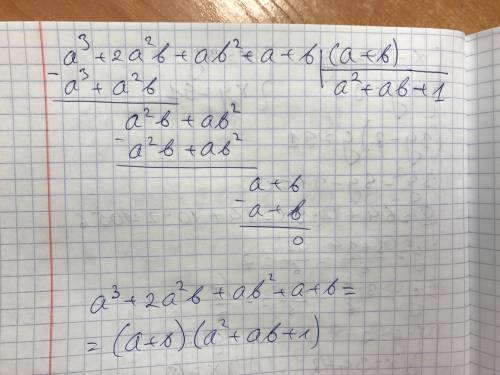 a³ + 2a²b + ab² + a + b | (a+b)
- a³ + a²b | a² + ab + 1
a²b + ab²
- a²b + ab²
a + b
- a + b
0
a³ + 2a²b + ab² + a + b =
= (a+b)(a² + ab + 1)